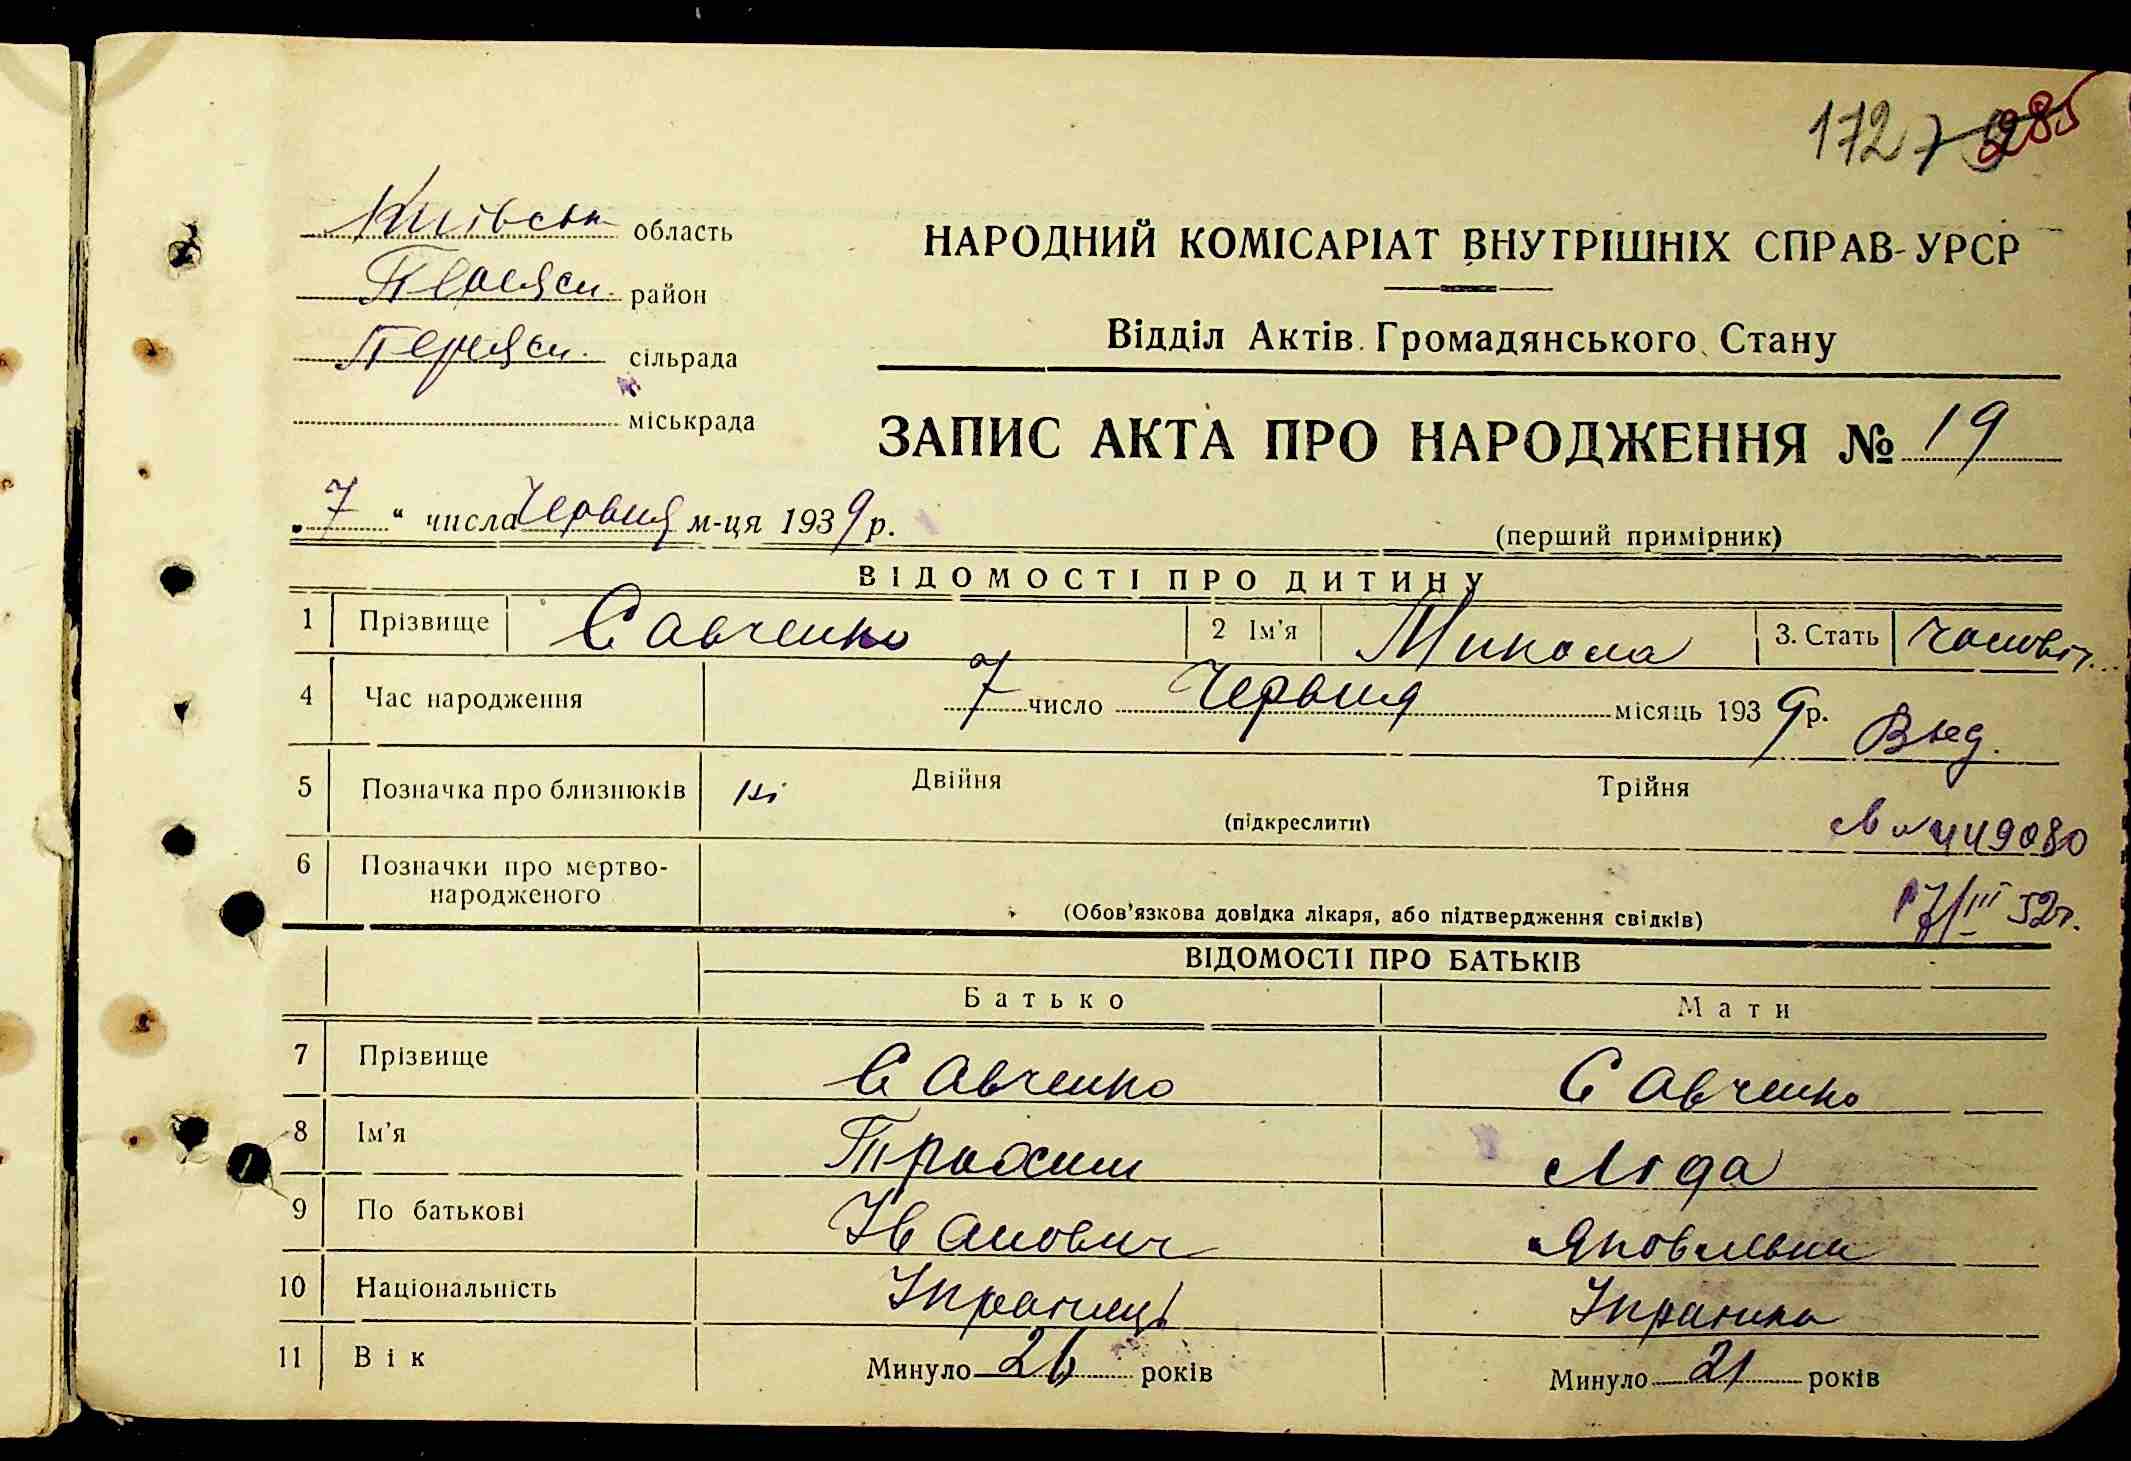 172 285
Київськ область
Переясл. район
Переясл. сільрада
міськрада
НАРОДНИЙ КОМІСАРІАТ ВНУТРІШНІХ СПРАВ-УРСР
Відділ Актів Громадянського Стану
ЗАПИС АКТА ПРО НАРОДЖЕННЯ № 19
„7“ числа Червня м-ця 1939 р.
(перший примірник)
ВІДОМОСТІ ПРО ДИТИНУ
1 Прізвище Савченко 2 Ім'я Микола 3. Стать чоловіч.
4 Час народження 7 число Червня місяць 1939 р.
Выд.
5 Позначка про близнюків ні Двійня Трійня
(підкреслити)
449080
6 Позначки про мертво-
народженого
(Обов'язкова довідка лікаря, або підтвердження свідків)
17/III 52г.
ВІДОМОСТІ ПРО БАТЬКІВ
Батько Мати
7 Прізвище Савченко Савченко
8 Ім'я Трахим Ліда
9 По батькові Іванович Яковлевна
10 Національність Українець Українка
11 Вік Минуло 26 років Минуло 21 років